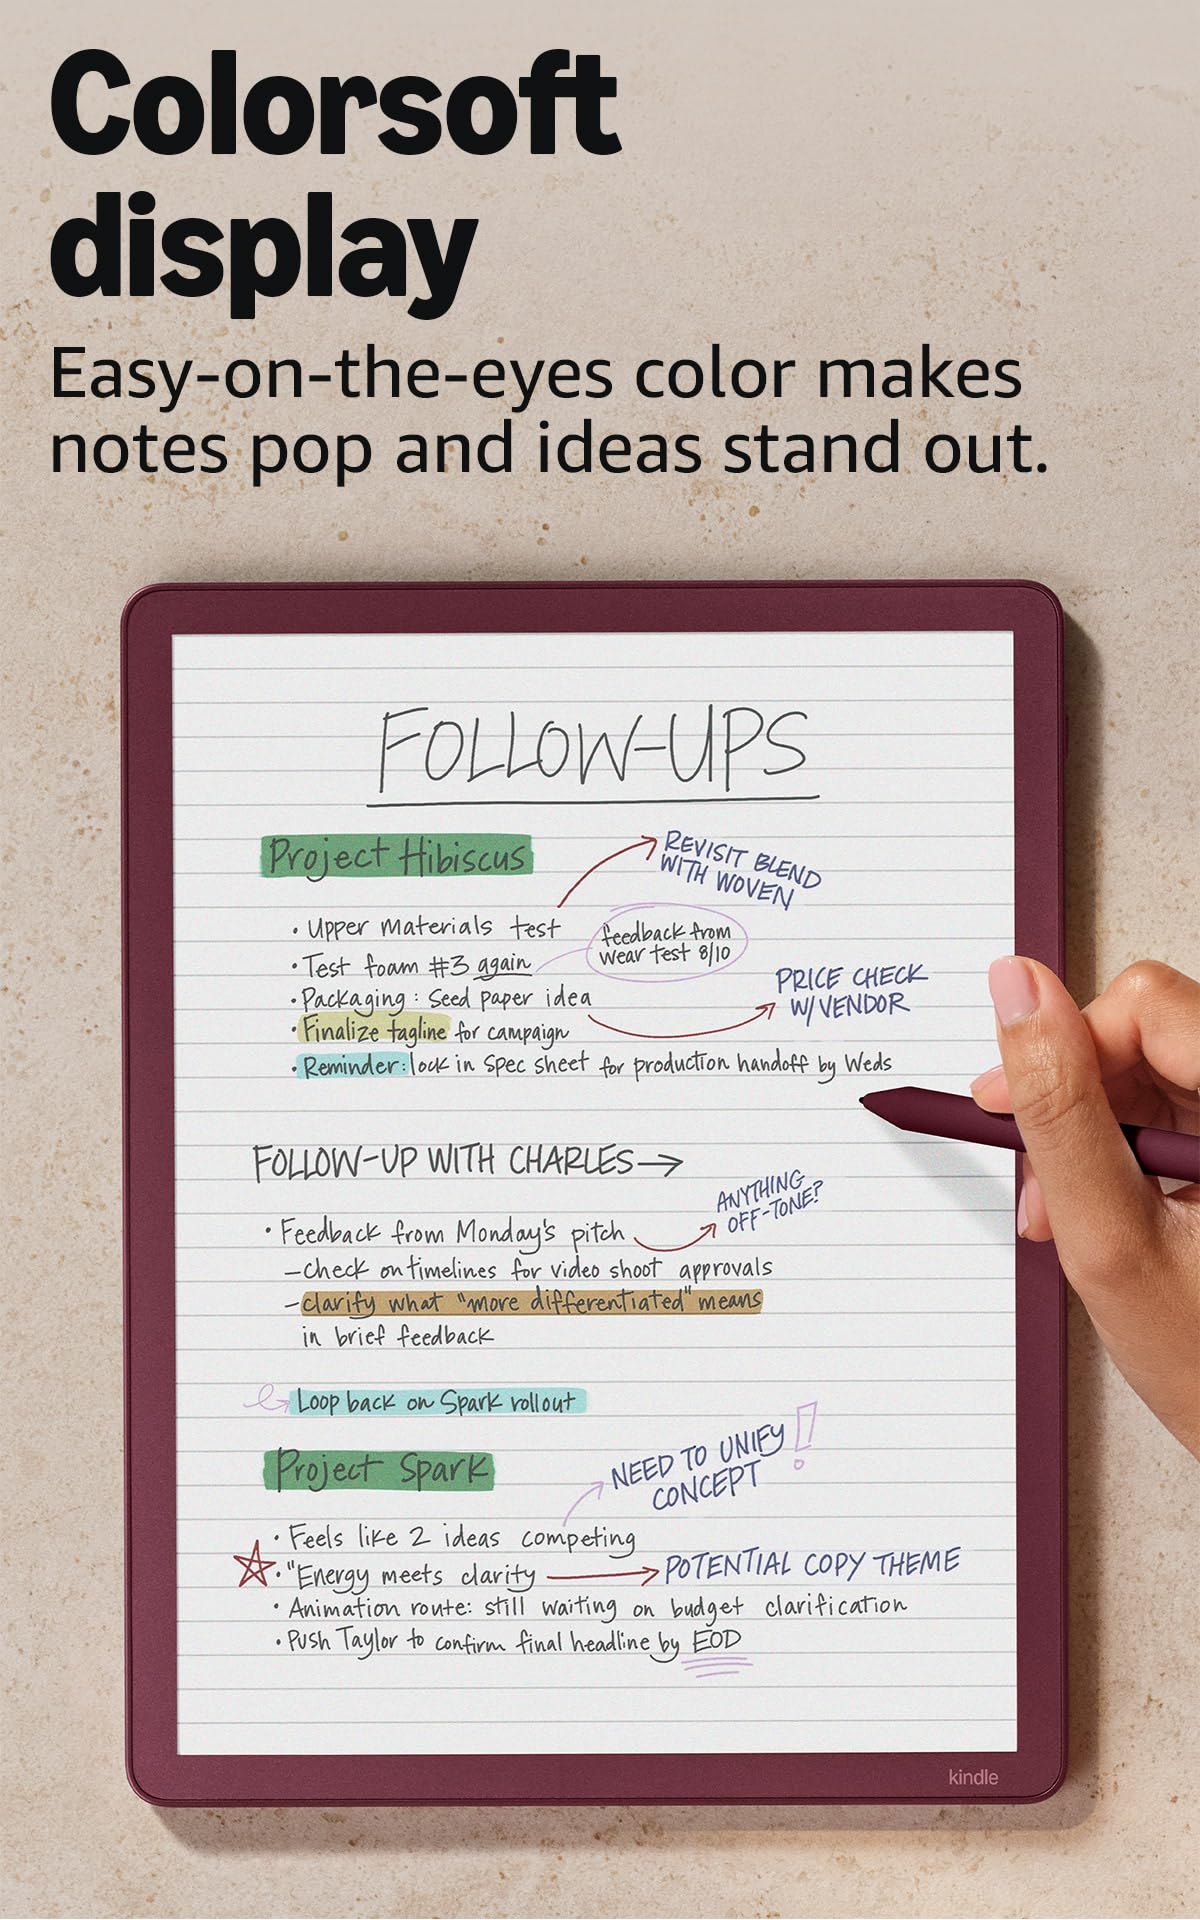 Colorsoft
display
Easy-on-the-eyes color makes
notes pop and ideas stand out.
FOLLOW-UPS
Project Hibiscus
REVISIT BLEND
WITH WOVEN
• Upper materials test
feedback from
wear test 8/10
• Test foam #3 again
• Packaging: Seed paper idea
PRICE CHECK
W/VENDOR
• Finalize tagline for campaign
• Reminder: lock in spec sheet for production handoff by Weds
FOLLOW-UP WITH CHARLES→
ANYTHING
OFF-TONE?
• Feedback from Monday's pitch
—check on timelines for video shoot approvals
—clarify what "more differentiated" means
in brief feedback
Loop back on Spark rollout
Project Spark
NEED TO UNIFY!
CONCEPT
• Feels like 2 ideas competing
• "Energy meets clarity → POTENTIAL COPY THEME
• Animation route: still waiting on budget clarification
• Push Taylor to confirm final headline by EOD
kindle